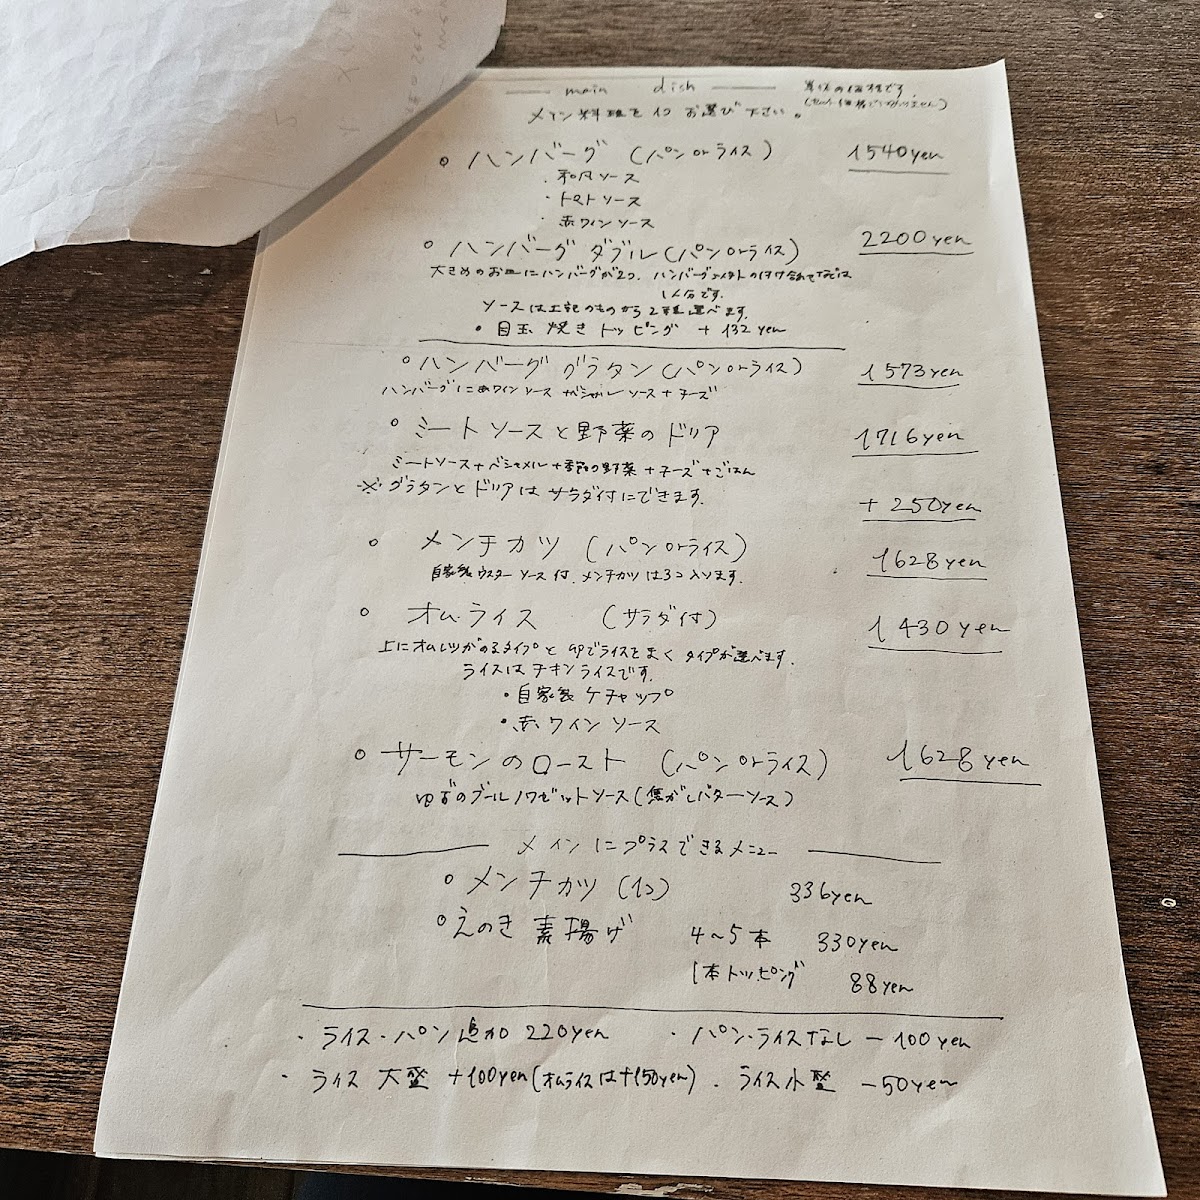 main dish
単体の価格です。
(セット価格ではありません)
メイン料理を1つお選び下さい。
○ ハンバーグ (パン or ライス) 1540yen
・和風ソース
・トマトソース
・赤ワインソース
○ ハンバーグ ダブル (パン or ライス) 2200yen
大きめのお皿にハンバーグが2つ、ハンバーグ以外の付け合わせなどは
1人分です。
ソースは上記のものから2種選べます。
・目玉焼き トッピング + 132yen
○ ハンバーグ グラタン (パン or ライス) 1573yen
ハンバーグに赤ワインソース ベシャメルソース+チーズ
○ ミートソースと野菜のドリア 1716yen
ミートソース+ベシャメル+季節の野菜+チーズ+ごはん
※ グラタンとドリアはサラダ付にできます。 + 250yen
○ メンチカツ (パン or ライス) 1628yen
自家製ウスターソース付、メンチカツは3コ入ります。
○ オムライス (サラダ付) 1430yen
上にオムレツがのるタイプと卵でライスをまくタイプが選べます。
ライスはチキンライスです。
・自家製ケチャップ
・赤ワインソース
○ サーモンのロースト (パン or ライス) 1628yen
ゆずのブールノワゼットソース(焦がしバターソース)
メインにプラスできるメニュー
○ メンチカツ (1コ) 336yen
○ えのき素揚げ 4～5本 330yen
1本トッピング 88yen
・ライス・パン追加 220yen ・パン・ライスなし -100yen
・ライス大盛 +100yen (オムライスは+150yen) ・ライス小盛 -50yen